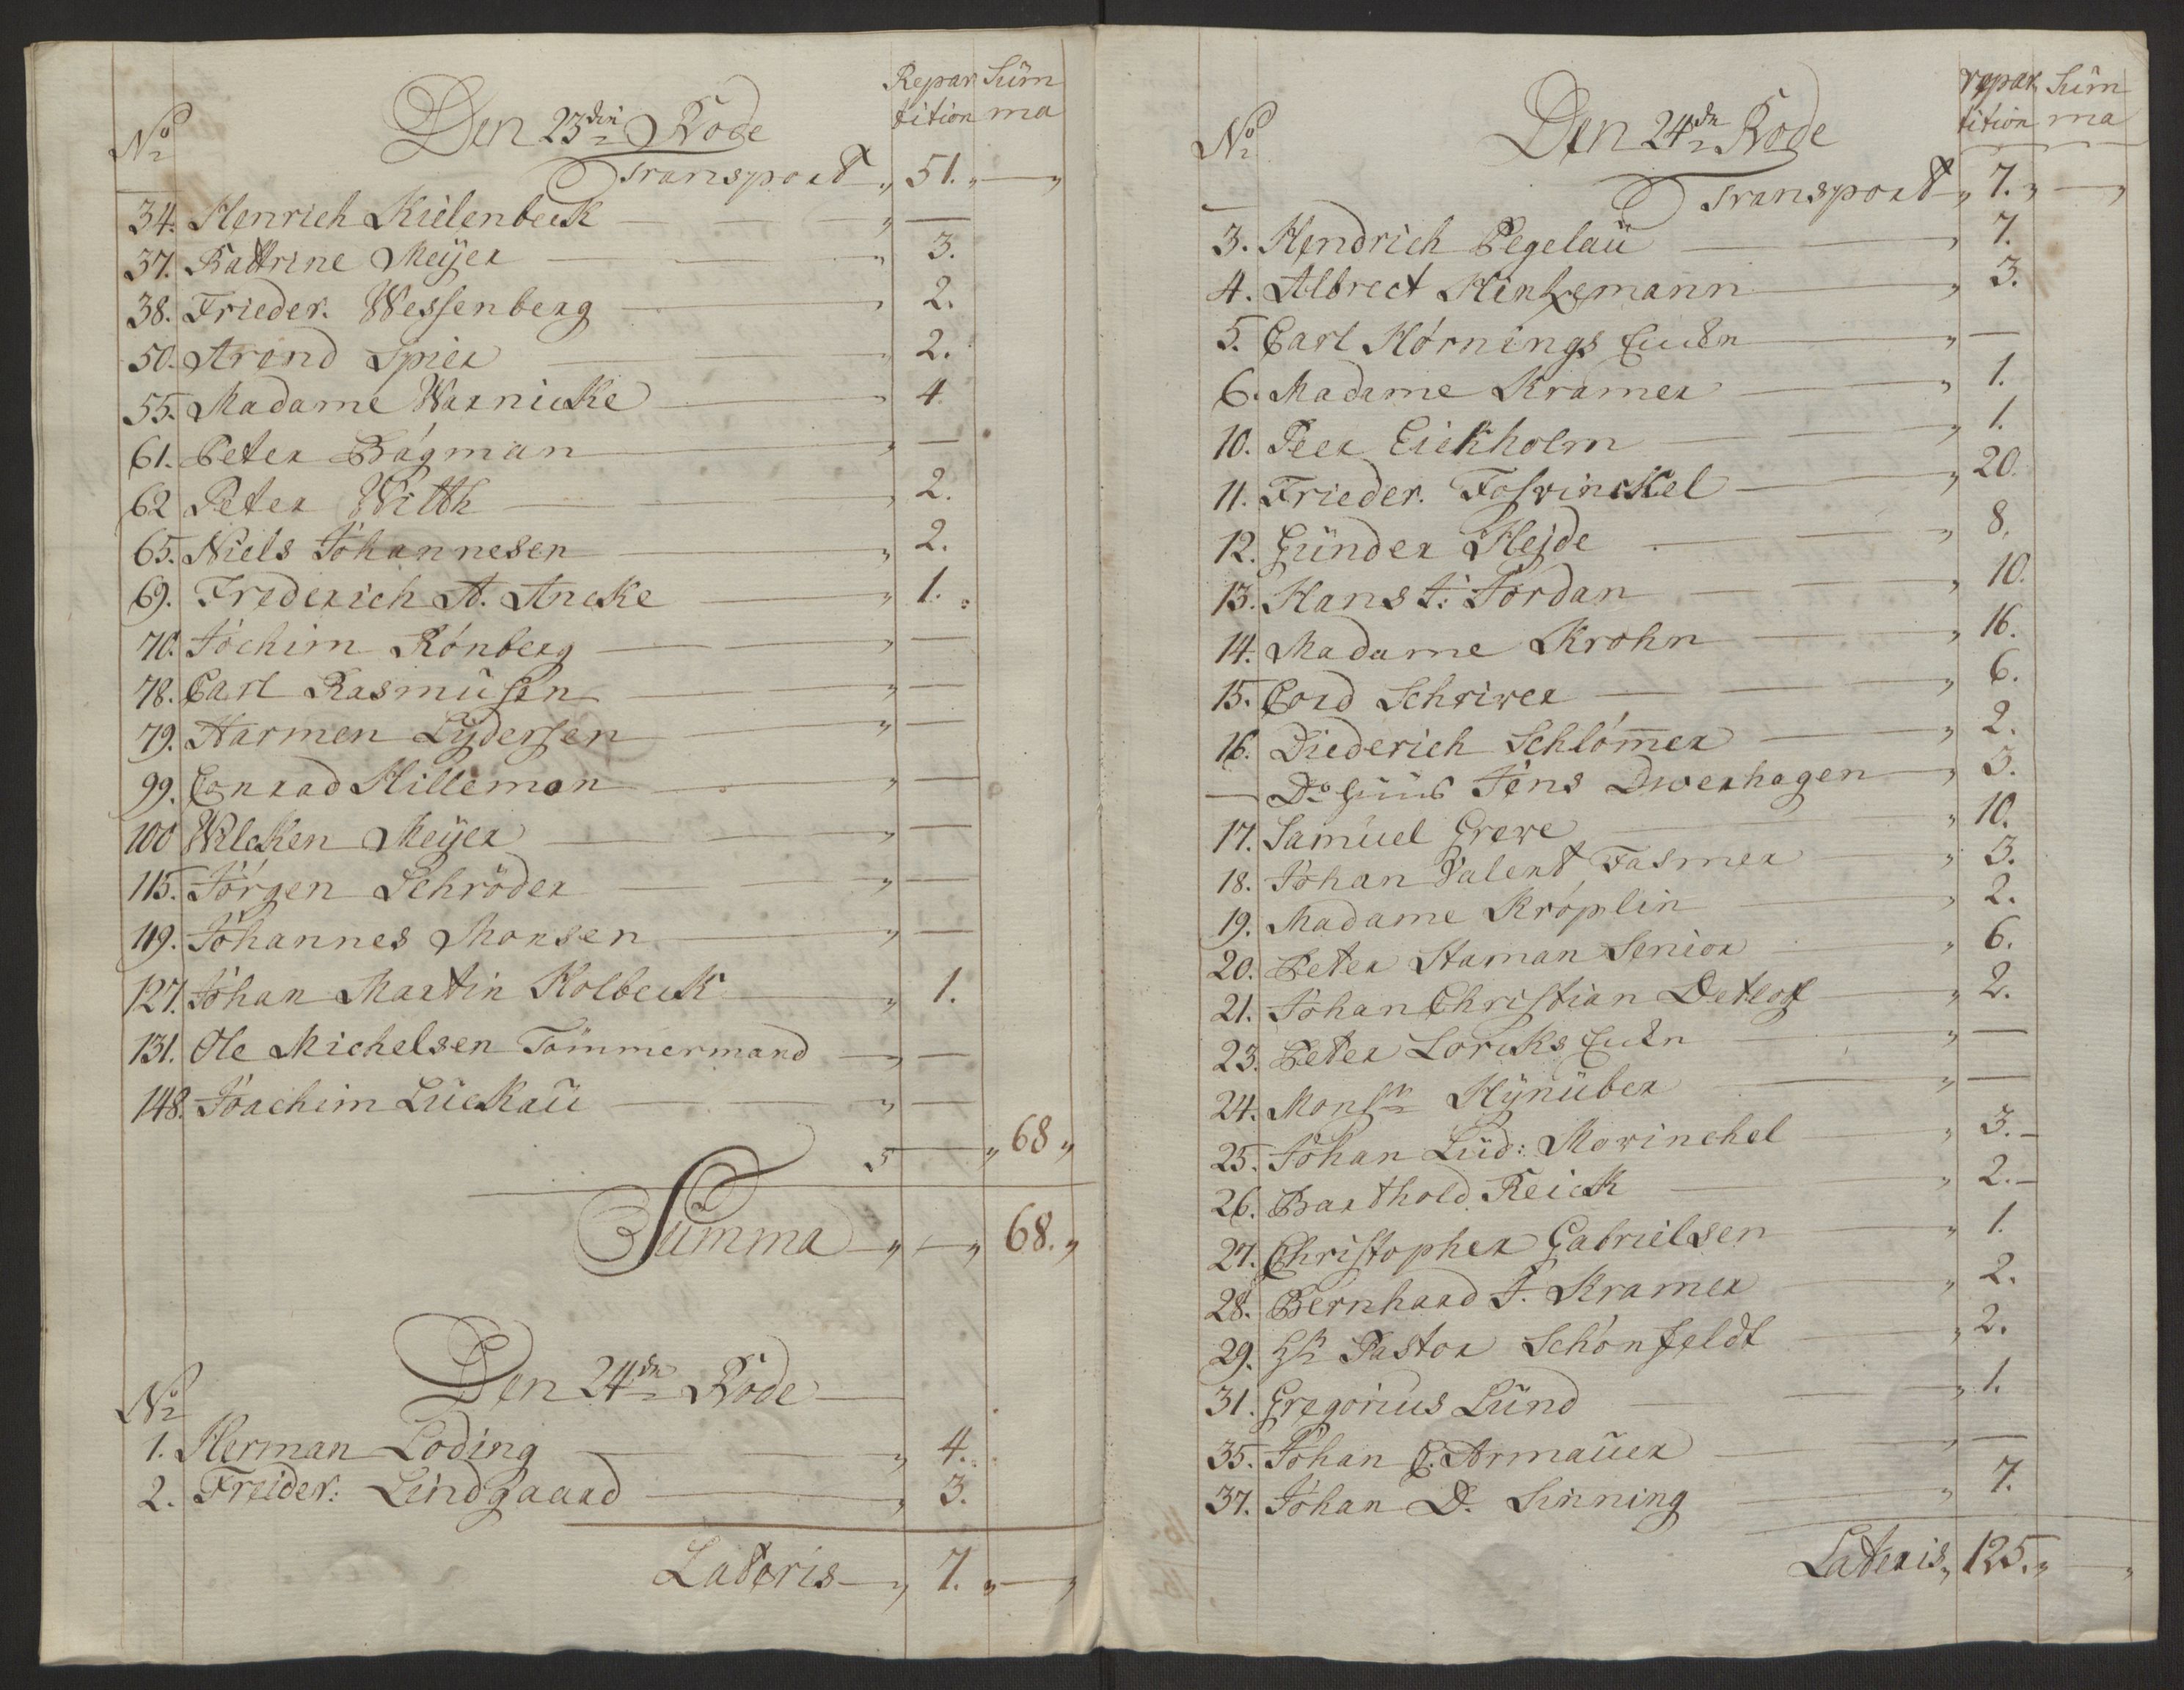 Repar Sum
No Den 23den Rode tition ma
Transport „ 51. „ — „
34. Henrich Kielenbeck — „ —
37. Kattrine Meÿer — „ 3.
38. Frieder. Wessenberg — „ 2.
50. Arend Spier — 2.
55. Madame Warnicke — 4
61. Peter Bágman — „ —
62 Peter Witth — „ 2.
65. Niels Johannesen — „ 2.
69. Frederich A. Ancke — „ 1.
70. Jochim Rónberg — „ —
78. Carl Rasmusen — „ —
79. Harmen Lÿdersen — „ —
99. Conrad Hilleman — „ —
100 Wilcken Meÿer — „ —
115. Jórgen Schröder — „ —
119. Johannes Monsen — „ —
127. Johan Martin Kolbeck — „ 1.
131. Ole Michelsen Tömmermand — „ —
148. Joachim Luckau — „ —
„ — „ 68 „
Summa — „ — „ 68. „
No Den 24de Rode
1. Herman Loding — „ 4.
2. Freider: Lindgaard — „ 3.
Lateris — „ 7. „ — „
repar Sum
No Den 24de Rode tition ma
Transport „ 7. „ — „
3. Hendrich Pegelau — „ 7.
4. Albrect Hintzemann — „ 3.
5. Carl Hórnings Enke — „ —
6. Madame Kramer — „ 1.
10. Peer Eickholm — „ 1.
11. Frieder. Fosvinckel — „ 20.
12. Gunder Heide — „ 8.
13. Hans J: Jordan — „ 10.
14. Madame Krohn — „ 16.
15. Cord Schriver — „ 6.
16. Diederich Schlómer — „ 2.
— Do Huus Jens Dwerhagen — „ 3.
17. Samuel Greve — „ 10.
18. Johan Valent Fasmer — „ 3.
19. Madame Króplin — „ 2.
20. Peter Staman Senior — „ 6.
21. Johan Christian Detlof — „ 2.
23. Peter Lorcks Enke — „ —
24. Monsr Hÿnuber — „ —
25. Johan Lud: Morinchel — „ 3. –
26. Barthold Reick — „ 2. –
27. Christopher Gabrielsen — „ 1.
28. Bernhard J. Kramer — „ 2.
29. Hr Pastor Schónfeldt — „ 2.
31. Gregorius Lund — „ 1.
35. Johan C. Armauer — „ —
37. Johan D. Sinning — „ 7.
Lateris „ 125. „ — „